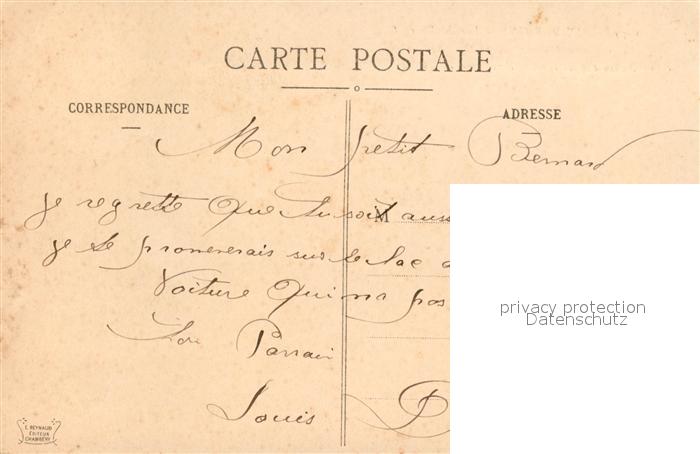 CARTE POSTALE
CORRESPONDANCE
ADRESSE
Mon petit Bernard
je regrette que tu soit auss
M
je te promenerais sur le lac
privacy protection
Voiture qui n'a pas
Datenschutz
ton Parrain
Louis
E. REYNAUD
ÉDITEUR
CHAMBÉRY